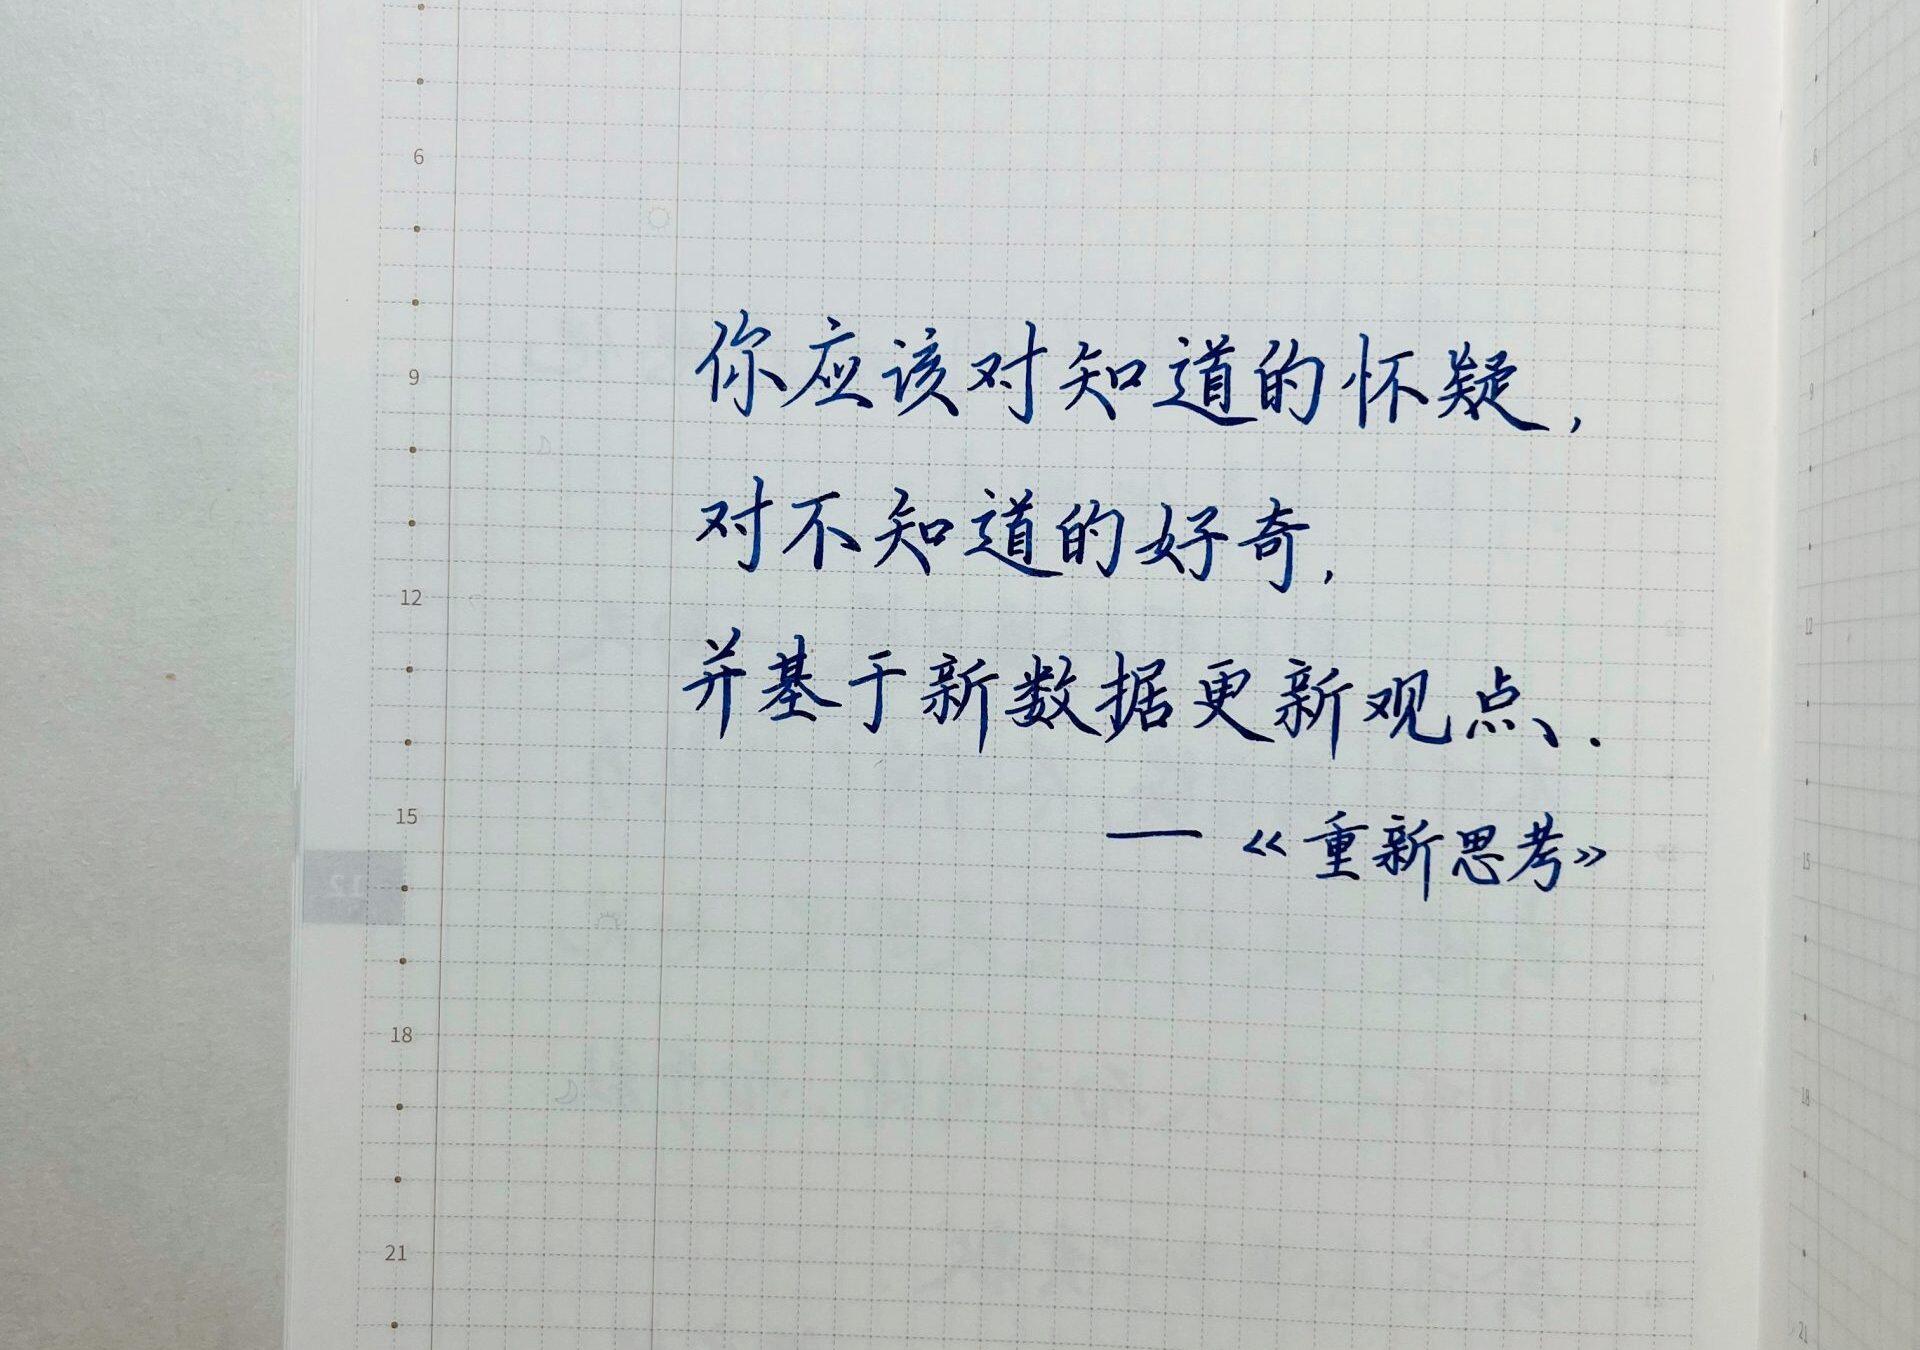 6
9
12
15
18
21
你应该对知道的怀疑，
对不知道的好奇，
并基于新数据更新观点、.
—《重新思考》
12
6
9
12
15
18
21